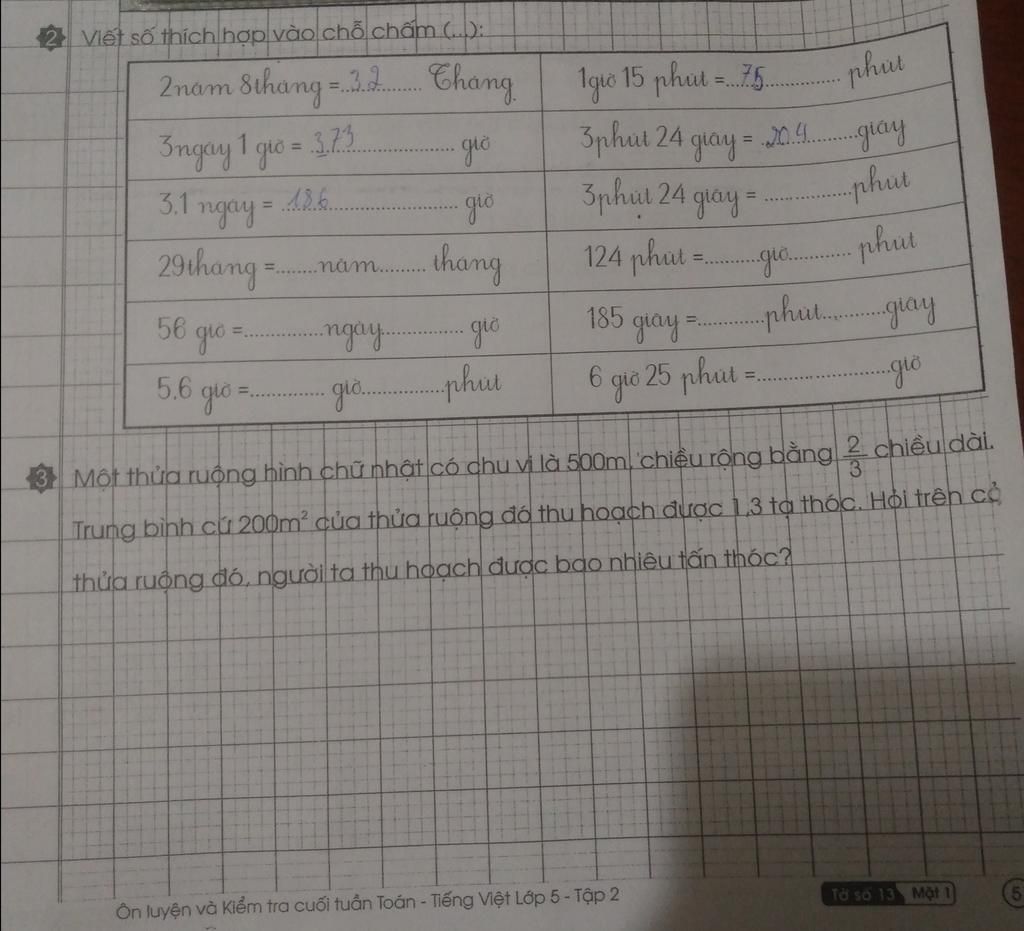 2 Viết số thích hợp vào chỗ chấm (...):
2 năm 8 tháng = ..32......... Tháng. 1 giờ 15 phút = ....75.............. phút
3 ngày 1 giờ = .373..................... giờ 3 phút 24 giây = .204..........giây
3,1 ngày = ..186......................... giờ 3 phút 24 giây = .................phút
29 tháng =.......năm......... tháng 124 phút =..........giờ............ phút
56 giờ =..............ngày.............. giờ 185 giây =............phút.............giây
5,6 giờ =............. giờ...............phút 6 giờ 25 phút =.........................giờ
3 Một thửa ruộng hình chữ nhật có chu vi là 500m, chiều rộng bằng 2/3 chiều dài.
Trung bình cứ 200m² của thửa ruộng đó thu hoạch được 1,3 tạ thóc. Hỏi trên cả
thửa ruộng đó, người ta thu hoạch được bao nhiêu tấn thóc?
Ôn luyện và Kiểm tra cuối tuần Toán - Tiếng Việt Lớp 5 - Tập 2 Tờ số 13 Mặt 1 5